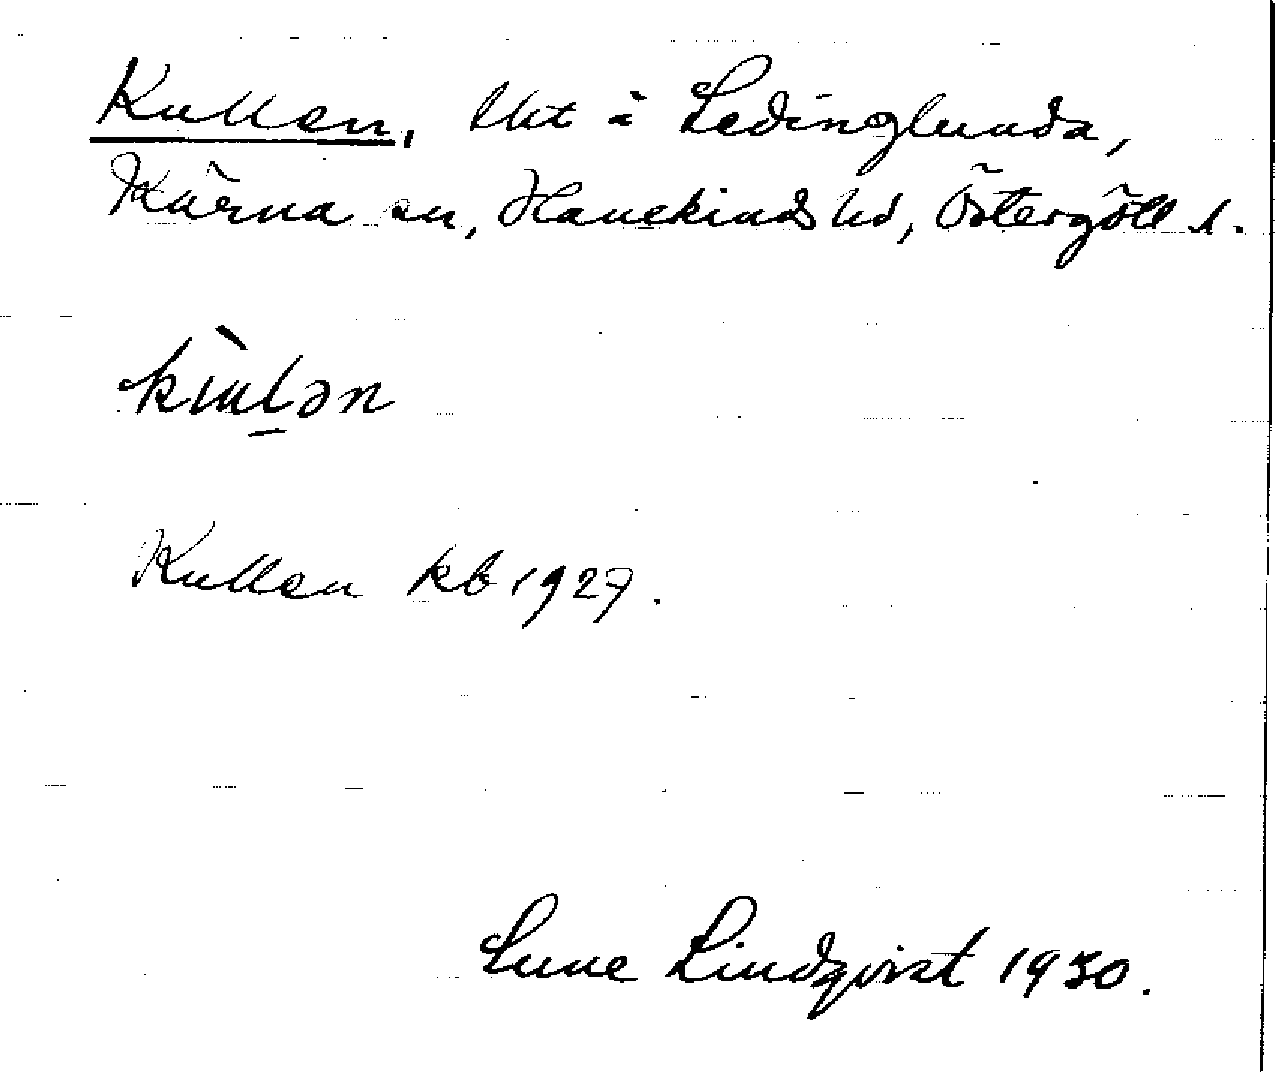 Kullen, lht i Ledinglunda,
Kärna sn, Hanekinds hd, Östergötl l.
kùlən
Kullen kb 1927.
Sune Lindqvist 1930.